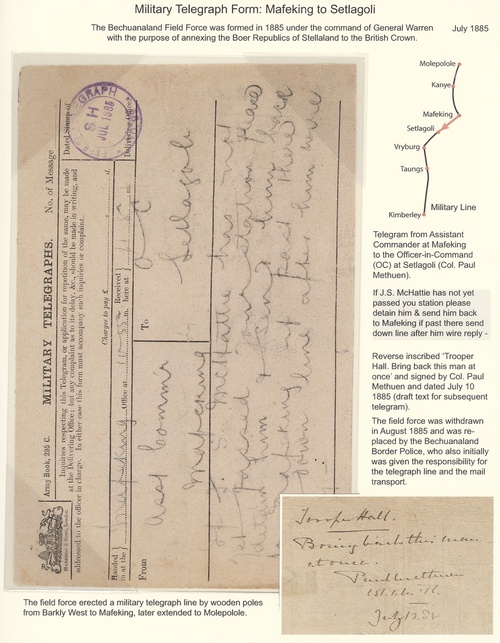 Military Telegraph Form: Mafeking to Setlagoli
The Bechuanaland Field Force was formed in 1885 under the command of General Warren
with the purpose of annexing the Boer Republics of Stellaland to the British Crown.
July 1885
Army Book, 295 C.
MILITARY TELEGRAPHS.
No. of Message
Inquiries respecting this Telegram, or application for repetition of the same, may be made
at the Delivering Office; but any complaint as to its delay, &c., should be made in writing, and
addressed to the officer in charge. In either case this form must accompany such inquiries or complaint.
Dated Stamp of
Delivering Office
TELEGRAPH
SH
JUL 1885
Charges to pay £ s. d.
Handed in at the
Office at
m. Received here at
m.
From
Asst Commr
Mafeking
To
O C
Setlagoli
If J. S. McHattie has not
yet passed your station please
detain him & send him back
to Mafeking if past there
send down line after him wire
Molepolole
Kanye
Mafeking
Setlagoli
Vryburg
Taungs
Kimberley
Military Line
Telegram from Assistant
Commander at Mafeking
to the Officer-in-Command
(OC) at Setlagoli (Col. Paul
Methuen).
If J.S. McHattie has not yet
passed you station please
detain him & send him back
to Mafeking if past there send
down line after him wire reply -
Reverse inscribed 'Trooper
Hall. Bring back this man at
once' and signed by Col. Paul
Methuen and dated July 10
1885 (draft text for subsequent
telegram).
The field force was withdrawn
in August 1885 and was re-
placed by the Bechuanaland
Border Police, who also initially
was given the responsibility for
the telegraph line and the mail
transport.
Trooper Hall.
Bring back this man
at once.
Paul Methuen
July
The field force erected a military telegraph line by wooden poles
from Barkly West to Mafeking, later extended to Molepolole.